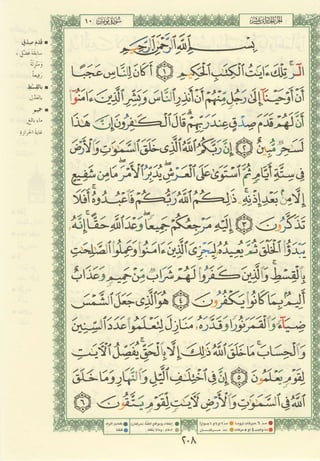 سورة يونس ١٠
الجزء الحادي عشر
بِسْمِ اللَّهِ الرَّحْمَٰنِ الرَّحِيمِ
الٓر تِلْكَ ءَايَٰتُ الْكِتَٰبِ الْحَكِيمِ ١ أَكَانَ لِلنَّاسِ عَجَبًا
أَنْ أَوْحَيْنَآ إِلَىٰ رَجُلٍ مِّنْهُمْ أَنْ أَنذِرِ النَّاسَ وَبَشِّرِ الَّذِينَ ءَامَنُوٓا
أَنَّ لَهُمْ قَدَمَ صِدْقٍ عِندَ رَبِّهِمْ قَالَ الْكَٰفِرُونَ إِنَّ هَٰذَا
لَسَٰحِرٌ مُّبِينٌ ٢ إِنَّ رَبَّكُمُ اللَّهُ الَّذِي خَلَقَ السَّمَٰوَٰتِ وَالْأَرْضَ
فِي سِتَّةِ أَيَّامٍ ثُمَّ اسْتَوَىٰ عَلَى الْعَرْشِ يُدَبِّرُ الْأَمْرَ مَا مِن شَفِيعٍ
إِلَّا مِنۢ بَعْدِ إِذْنِهِ ذَٰلِكُمُ اللَّهُ رَبُّكُمْ فَاعْبُدُوهُ أَفَلَا
تَذَكَّرُونَ ٣ إِلَيْهِ مَرْجِعُكُمْ جَمِيعًا وَعْدَ اللَّهِ حَقًّا إِنَّهُ
يَبْدَؤُا الْخَلْقَ ثُمَّ يُعِيدُهُ لِيَجْزِيَ الَّذِينَ ءَامَنُوا وَعَمِلُوا الصَّٰلِحَٰتِ
بِالْقِسْطِ وَالَّذِينَ كَفَرُوا لَهُمْ شَرَابٌ مِّنْ حَمِيمٍ وَعَذَابٌ
أَلِيمٌۢ بِمَا كَانُوا يَكْفُرُونَ ٤ هُوَ الَّذِي جَعَلَ الشَّمْسَ
ضِيَآءً وَالْقَمَرَ نُورًا وَقَدَّرَهُ مَنَازِلَ لِتَعْلَمُوا عَدَدَ السِّنِينَ
وَالْحِسَابَ مَا خَلَقَ اللَّهُ ذَٰلِكَ إِلَّا بِالْحَقِّ يُفَصِّلُ الْءَايَٰتِ
لِقَوْمٍ يَعْلَمُونَ ٥ إِنَّ فِي اخْتِلَٰفِ الَّيْلِ وَالنَّهَارِ وَمَا خَلَقَ
اللَّهُ فِي السَّمَٰوَٰتِ وَالْأَرْضِ لَءَايَٰتٍ لِّقَوْمٍ يَتَّقُونَ ٦
قدم صدق
بالقسط
بالعدل
حميم
٢٠٨